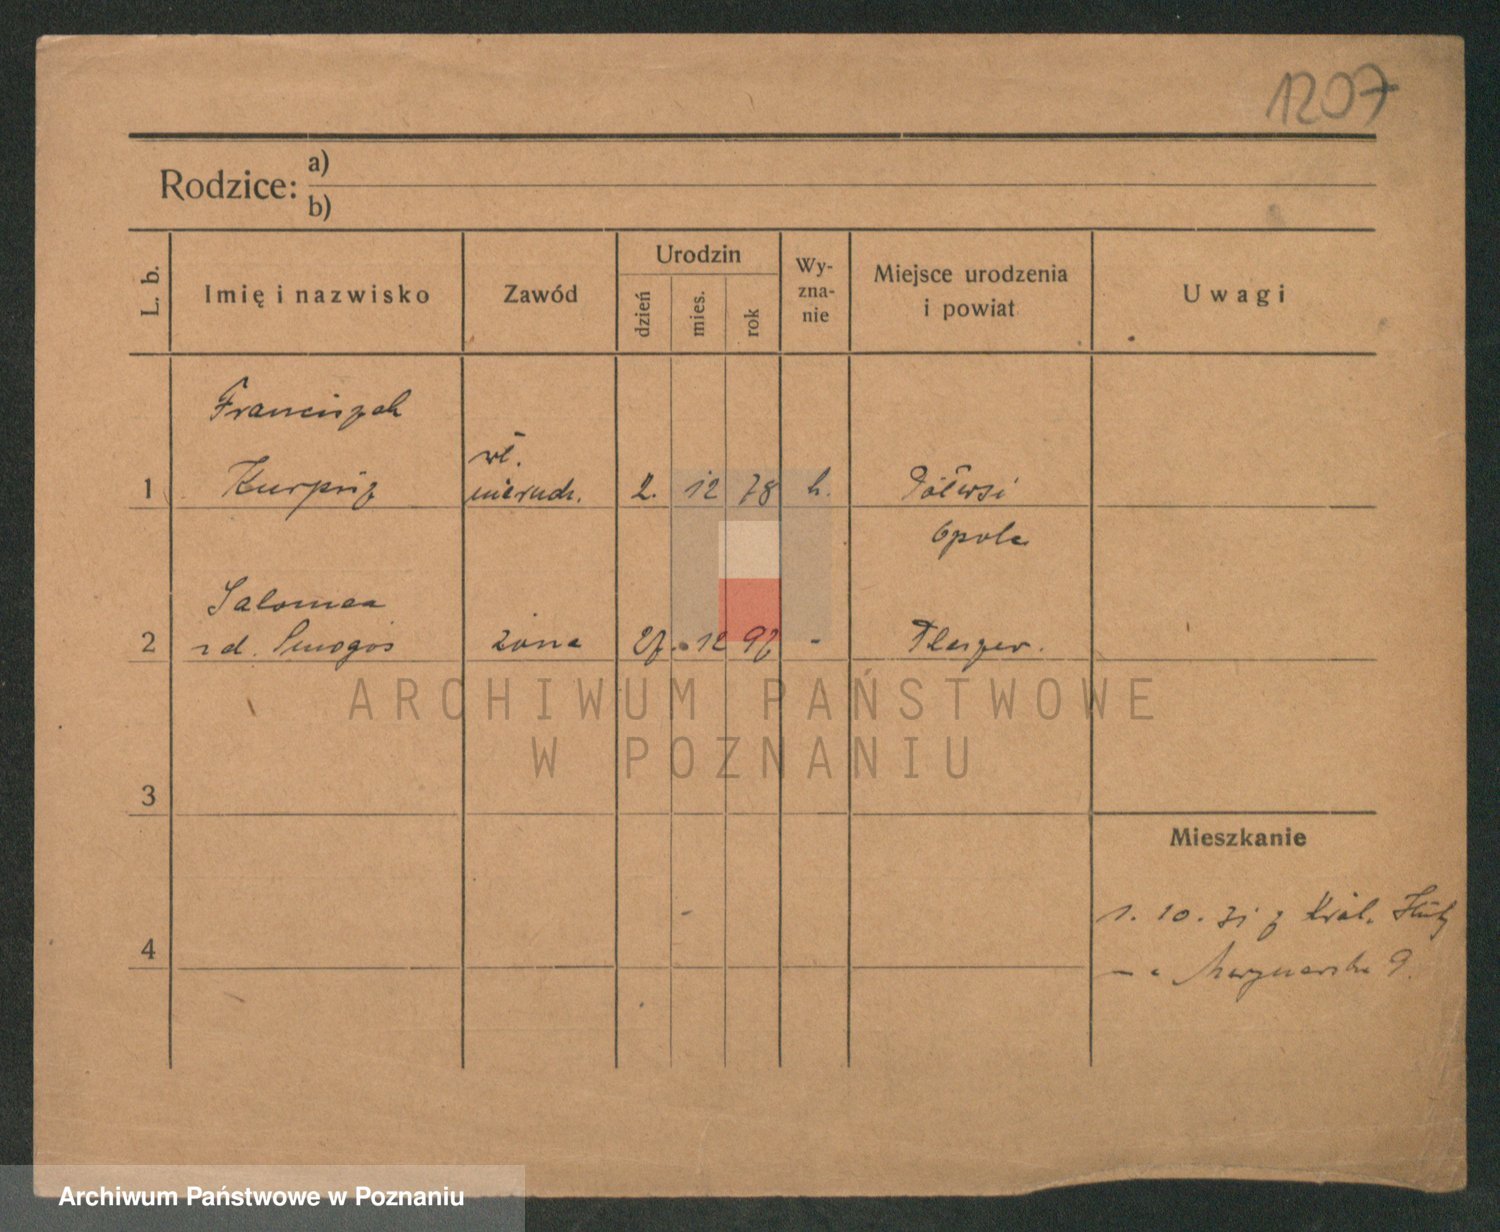 1207
Rodzice: a)
b)
L. b.
Imię i nazwisko
Zawód
Urodzin
dzień
mies.
rok
Wy-
zna-
nie
Miejsce urodzenia
i powiat
Uwagi
Franciszek
wł.
1 Kurpisz nieruch. 2. 12 78 k. Półwsi
Opole
Salomea
2 rd. Smogor żona 27. 12 97 - Pleszew.
3
4
Mieszkanie
1. 10. 31 z Król. Huty
Marynarska 9.
ARCHIWUM PAŃSTWOWE
W POZNANIU
Archiwum Państwowe w Poznaniu